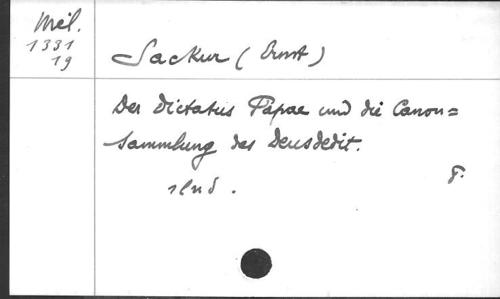 Mél.
1331
19
Sackur (Ernst)
Der Dictatus Papae und die Canon=
sammlung des Deusdedit.
slnd.
F.